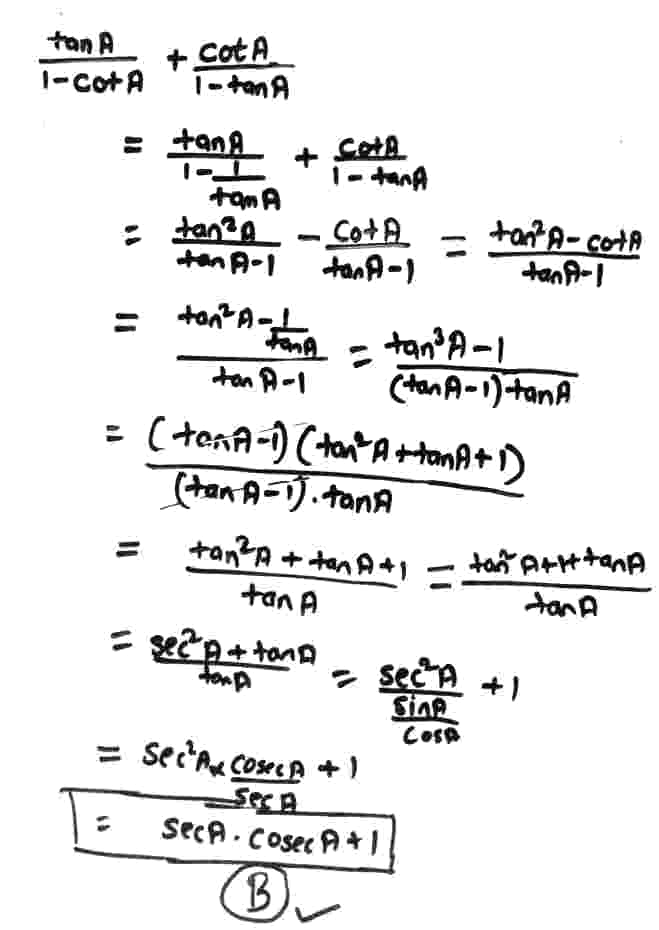 tanA/(1-cotA) + cotA/(1-tanA)
= tanA/(1-1/tanA) + cotA/(1-tanA)
= tan²A/(tanA-1) - cotA/(tanA-1) = (tan²A-cotA)/(tanA-1)
= (tan²A-1/tanA)/(tanA-1) = (tan³A-1)/((tanA-1)tanA)
= (tanA-1)(tan²A+tanA+1)/((tanA-1).tanA)
= (tan²A+tanA+1)/tanA = (tan²A+1+tanA)/tanA
= (sec²A+tanA)/tanA = sec²A/(sinA/cosA) + 1
= sec²A × cosecA/secA + 1
= secA.cosecA+1
B ✓